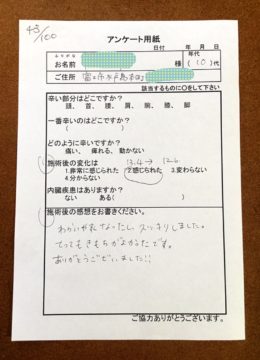 45/100
アンケート用紙
日付 年 月 日
ふりがな
お名前 様
年代
(10)代
ご住所 富士市水戸島本町
該当するものに○をして下さい
辛い部分はどこですか?
頭、首、腰、肩、腕、膝、脚
一番辛いのはどこですか?
( )
どのように辛いですか?
痛い、 痺れる、 動かない
施術後の変化は 13.4 → 12.6
1.非常に感じられた 2.感じられた 3.変わらない
4.分からない
内臓疾患はありますか?
ない ある( )
施術後の感想をお書きください。
わかいがれなったし、スッキリしました。
とってもきもちがよかったです。
ありがとうございました!!
ご協力ありがとうございます。